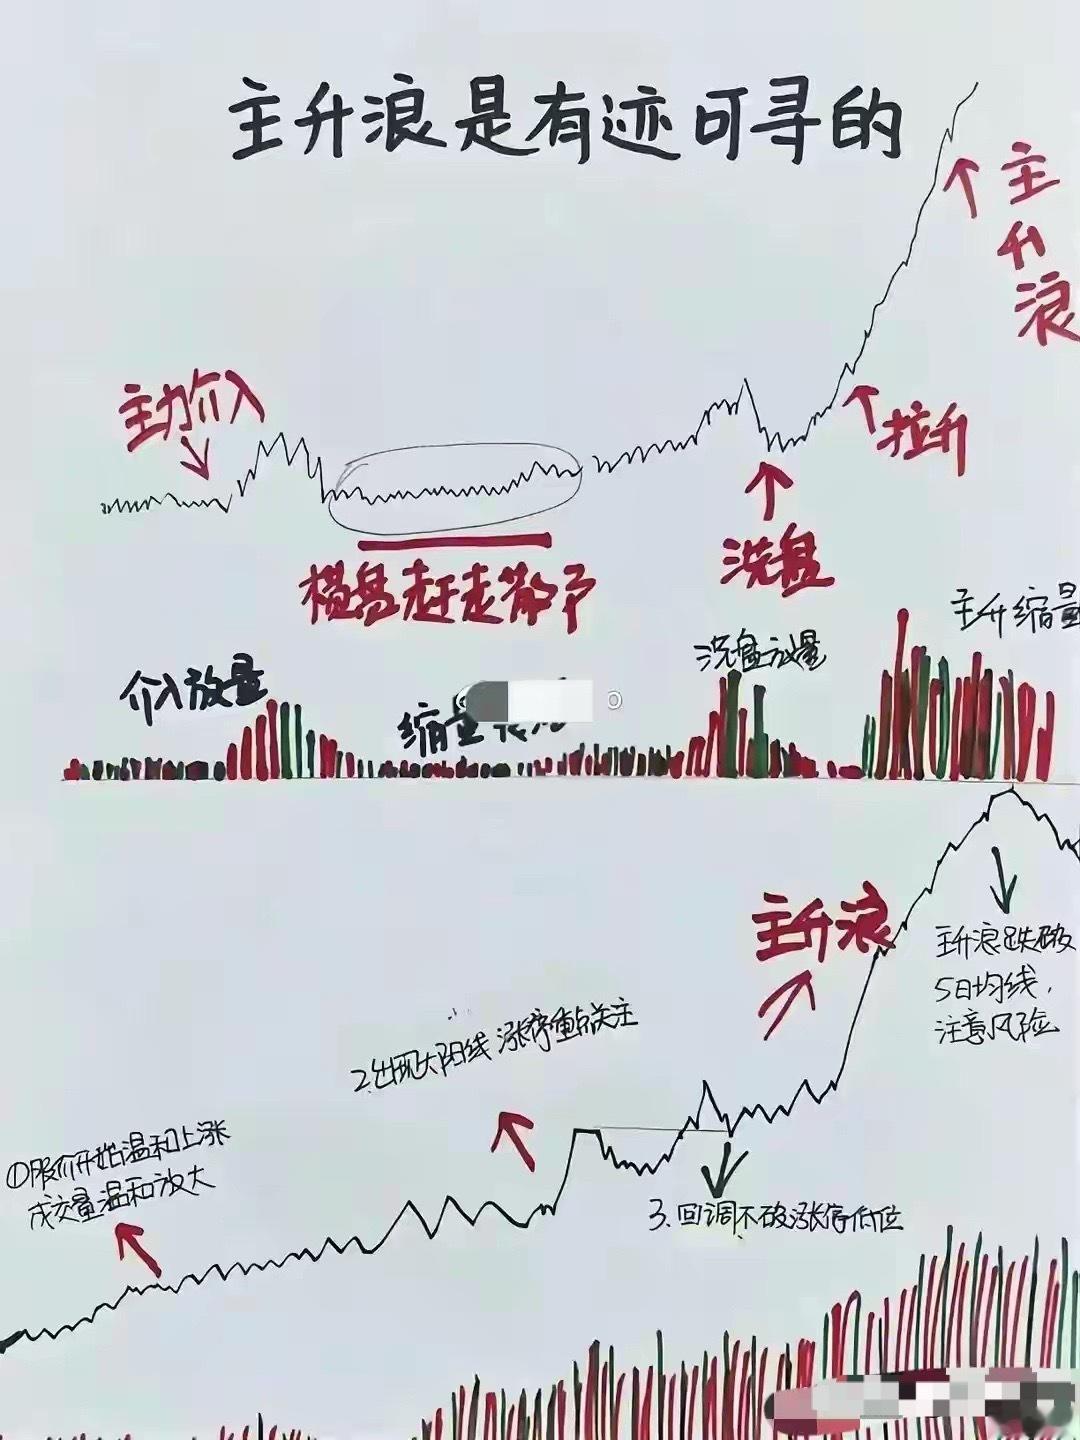 主升浪是有迹可寻的
主升浪
主力介入
拉升
洗盘
横盘赶走散户
主升缩量
洗盘放量
介入放量
缩量
主升浪
主升浪跌破
5日均线,
注意风险
2.出现大阳线 涨停重点关注
①股价开始温和上涨
成交量温和放大
3.回调不破涨停低位